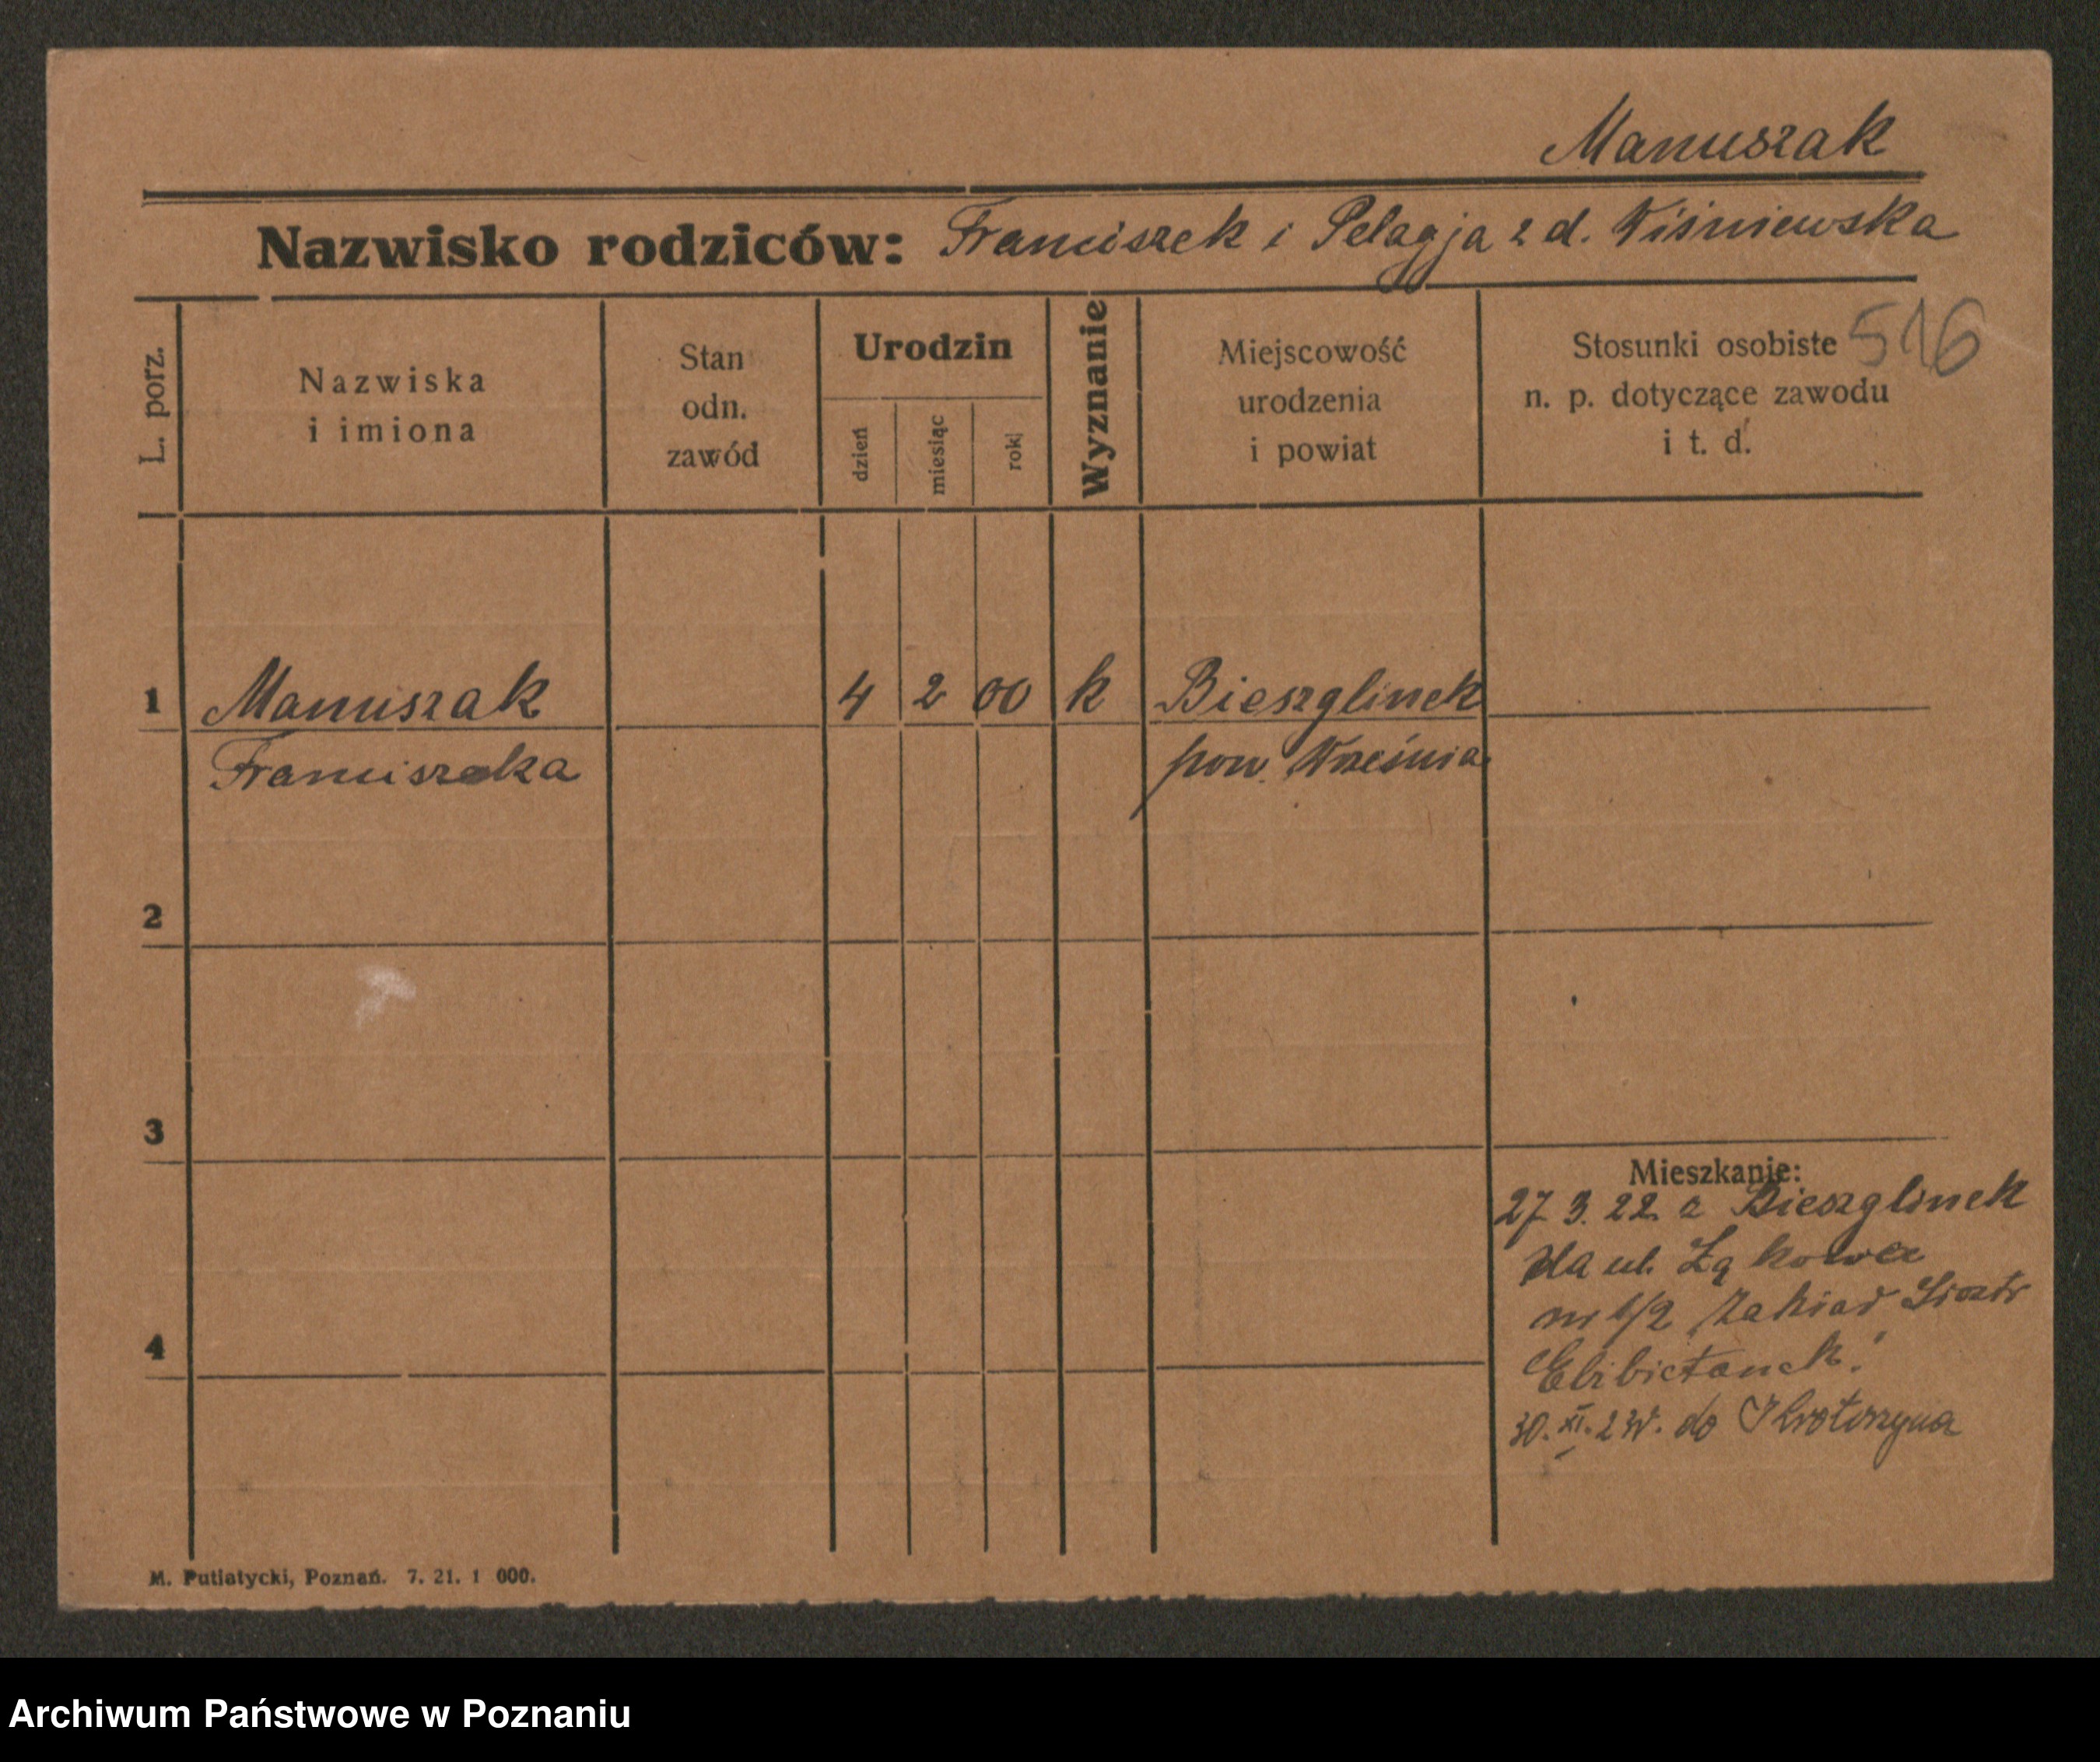 Manuszak
Nazwisko rodziców: Franciszek i Pelagja z d. Wiśniewska
516
L. porz.
Nazwiska
i imiona
Stan
odn.
zawód
Urodzin
dzień
miesiąc
rok
Wyznanie
Miejscowość
urodzenia
i powiat
Stosunki osobiste
n. p. dotyczące zawodu
i t. d.
1 Manuszak 4 2 00 k Bieszglinek
Franciszka pow. Września
2
3
Mieszkanie:
27. 3. 22. z Bieszglinek
na ul. Łąkowa
nr 1/2 Zakład Siostr
Elżbietanek.
4
30. XI. 23 r. do Krotoszyna
M. Putiatycki, Poznań. 7. 21. 1 000.
Archiwum Państwowe w Poznaniu